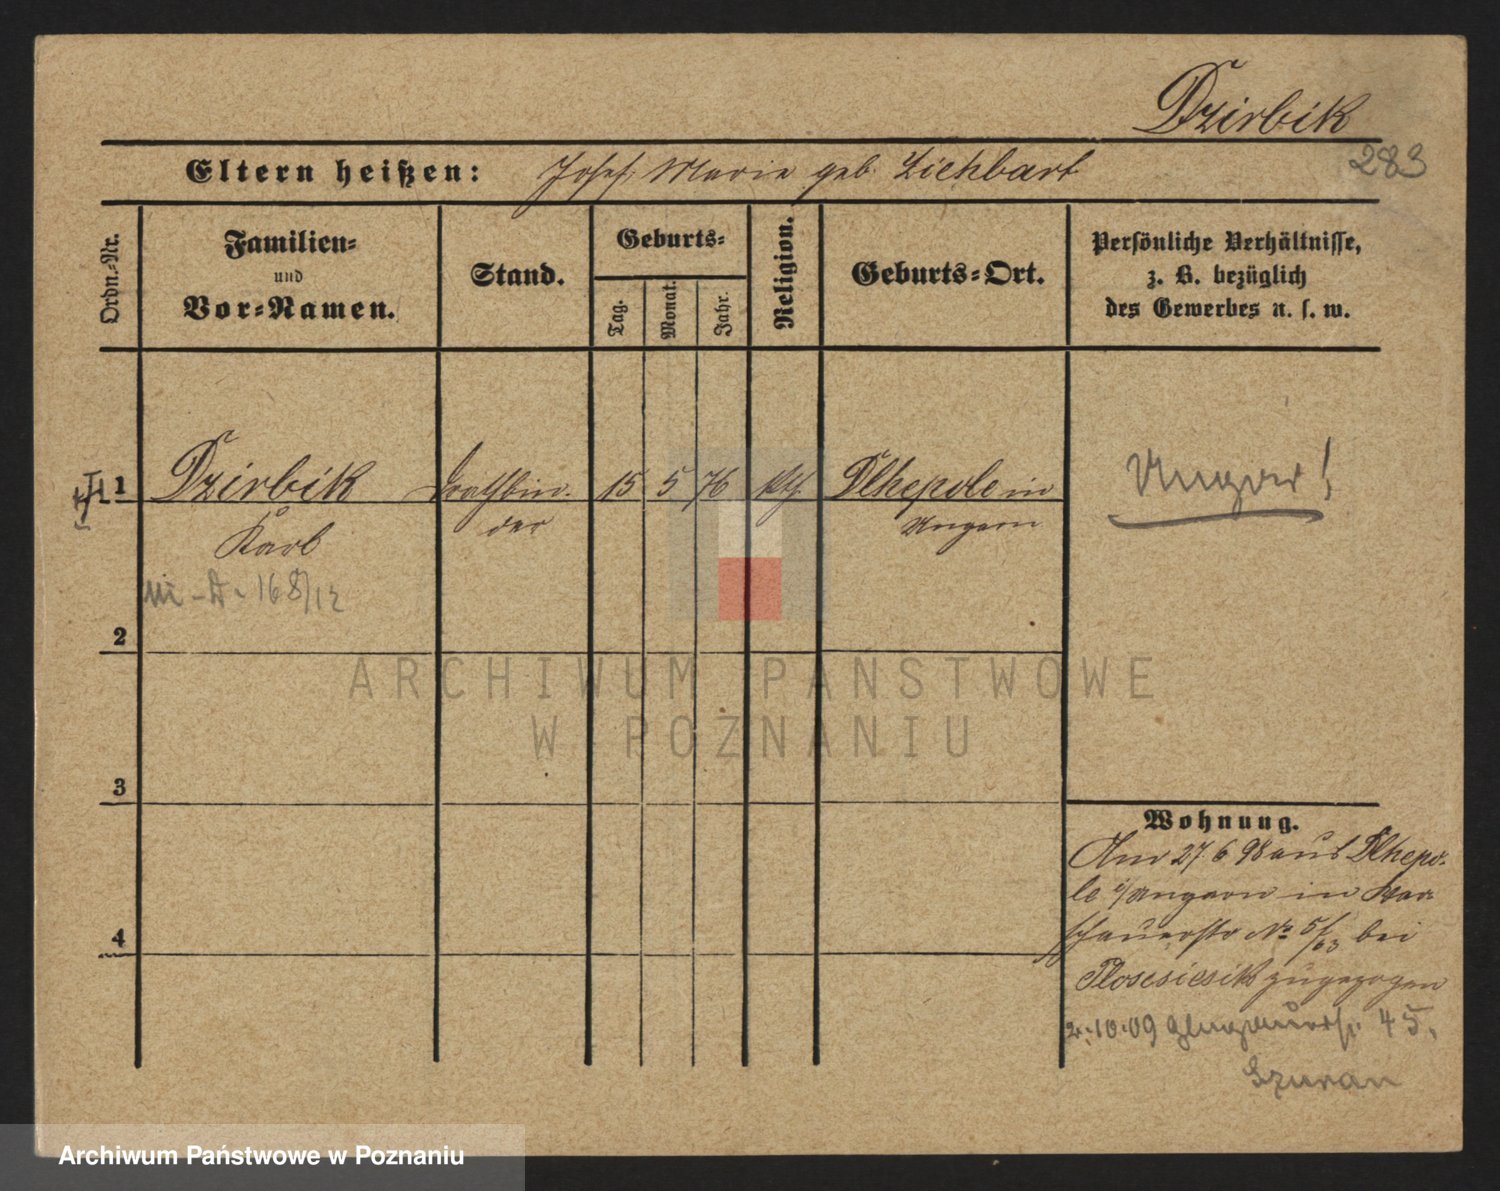 Dzirbik
283
Eltern heißen: Josef, Marie geb. Lichbart
Ordn.-Nr.
Familien-
und
Vor-Namen.
Stand.
Geburts-
Tag.
Monat.
Jahr.
Religion.
Geburts-Ort.
Persönliche Verhältnisse,
z. B. bezüglich
des Gewerbes u. s. w.
1 Dzirbik Drathbin- 15 5 76 kth. Dlhepole in
Karl der Ungarn
Ungar!
168/12
2
ARCHIWUM PAŃSTWOWE
W POZNANIU
3
Wohnung.
Am 27.6.98 aus Dlhepo-
le i/Ungarn in War-
schauerstr No 5/63 bei
zugezogen
2.10.09 45.
Szuran
4
Archiwum Państwowe w Poznaniu